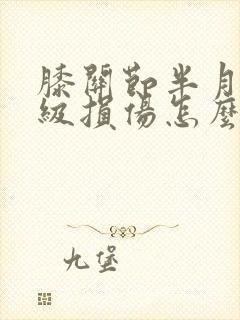 膝關節半月
級損傷怎麼
九堡